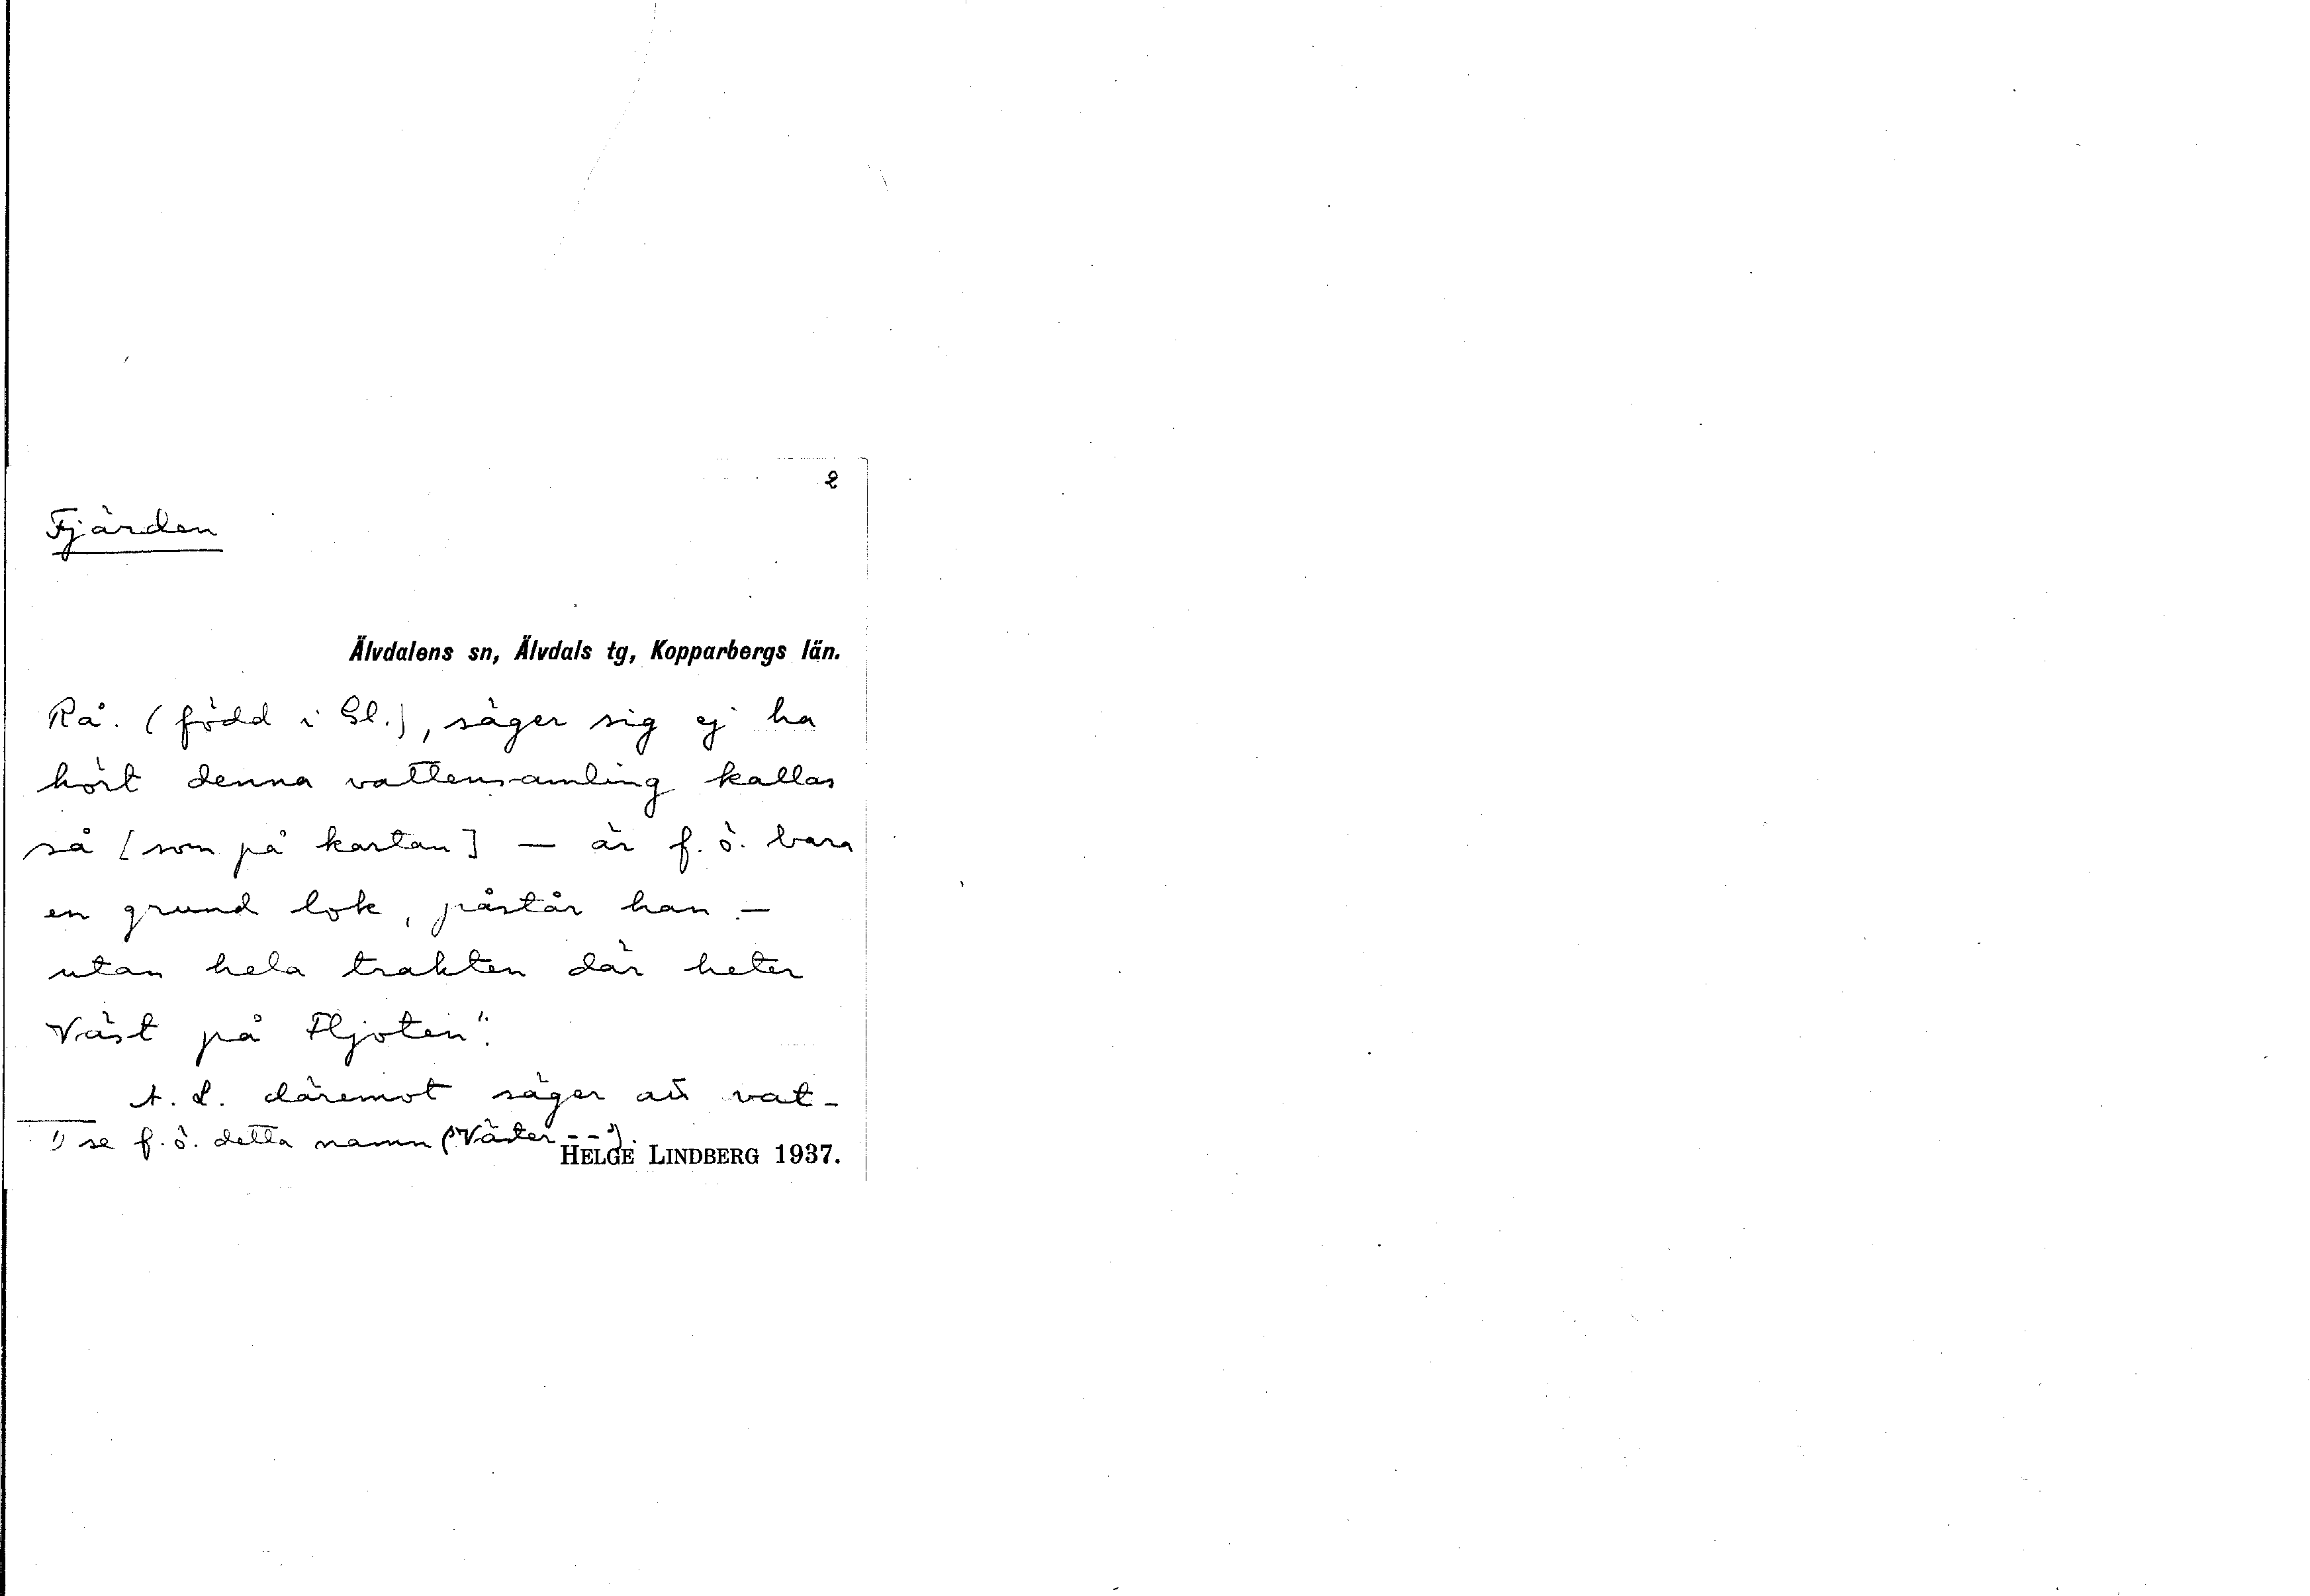 2
Fjärden
Älvdalens sn, Älvdals tg, Kopparbergs län.
Rå. (född i Gl.), säger sig ej ha
hört denna vattensamling kallas
så [som på kartan] — är f. ö. bara
en grund lok, påstår han —
utan hela trakten där heter
Väst på Fljoten¹⁾.
A. L. däremot säger att vat-
¹⁾ se f. ö. detta namn ("Väster - -").
HELGE LINDBERG 1937.